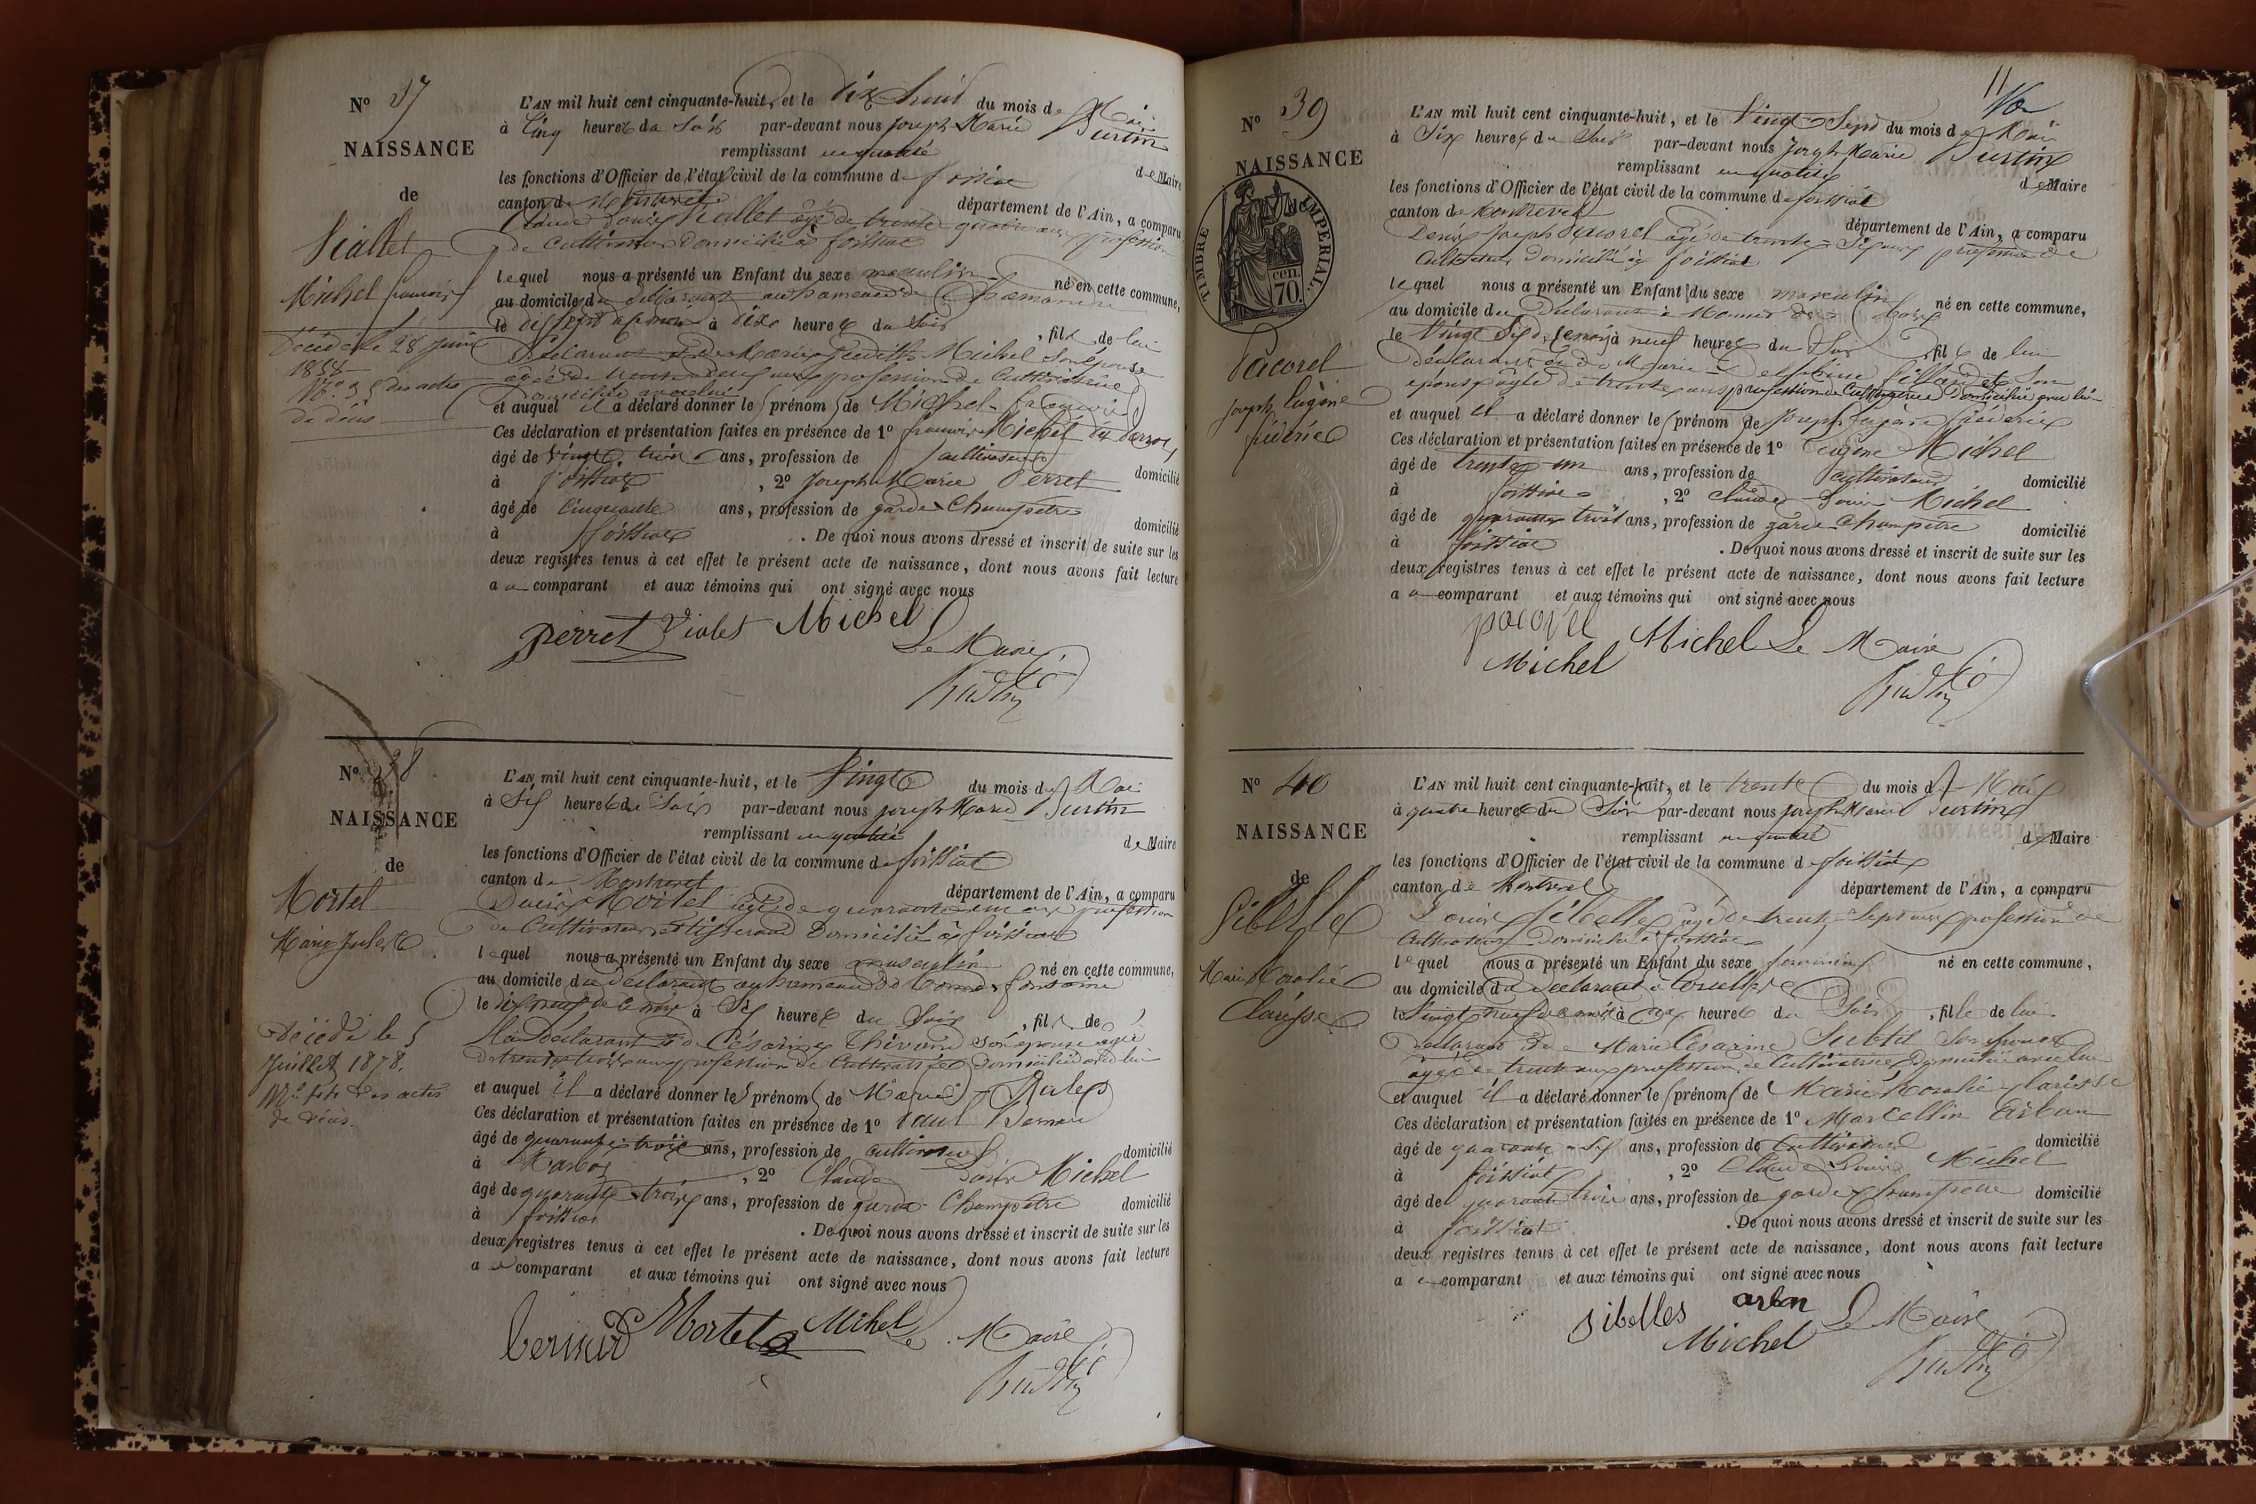 N° 37
NAISSANCE
de
Viallet
Michel françois
Décédé le 28 Juin
1858
N° 35 des actes
de décès
L'AN mil huit cent cinquante-huit, et le dix huit du mois de Mai
à Cinq heures du Soir par-devant nous Joseph Marie Burtin
remplissant en qualité de Maire
les fonctions d'Officier de l'état civil de la commune de foissiat
canton de Montrevel département de l'Ain, a comparu
Claude Louis Viallet âgé de trente quatre ans profession
de Cultivateur Domicilié à foissiat
lequel nous a présenté un Enfant du sexe masculin né en cette commune,
au domicile du déclarant au hameau de
le dix sept de ce mois à dix heures du Soir, fils de lui
Déclarant et de Marie Judith Michel Son épouse
âgée de trente deux ans profession de Cultivatrice
Domiciliée avec lui
et auquel il a déclaré donner le prénom de Michel françois
Ces déclaration et présentation faites en présence de 1° françois Michel
âgé de vingt trois ans, profession de cultivateur domicilié
à foissiat, 2° Joseph Marie Perret
âgé de Cinquante ans, profession de garde Champêtre domicilié
à foissiat. De quoi nous avons dressé et inscrit de suite sur les
deux registres tenus à cet effet le présent acte de naissance, dont nous avons fait lecture
au comparant et aux témoins qui ont signé avec nous
perret Violet Michel
Le Maire
Burtin
N° 38
NAISSANCE
de
Mortel
Marie Jules
Décédé le 5
Juillet 1878.
des actes
de décès.
L'AN mil huit cent cinquante-huit, et le Vingt du mois de Mai
à Six heures du Soir par-devant nous Joseph Marie Burtin
remplissant en qualité de Maire
les fonctions d'Officier de l'état civil de la commune de foissiat
canton de Montrevel département de l'Ain, a comparu
Mortel âgé de quarante ans profession
de Cultivateur et tisserand Domicilié à foissiat
lequel nous a présenté un Enfant du sexe masculin né en cette commune,
au domicile du déclarant au hameau de Bonne fontaine
le dix neuf de ce mois à Six heures du Soir, fils de
lui Déclarant et de Césarine Thévenin Son épouse âgée
de trente trois ans profession de Cultivatrice Domiciliée avec lui
et auquel il a déclaré donner les prénoms de Marie Jules
Ces déclaration et présentation faites en présence de 1° Paul Bernard
âgé de quarante trois ans, profession de cultivateur domicilié
à Marboz, 2° Claude Louis Michel
âgé de quarante trois ans, profession de garde Champêtre domicilié
à foissiat. De quoi nous avons dressé et inscrit de suite sur les
deux registres tenus à cet effet le présent acte de naissance, dont nous avons fait lecture
au comparant et aux témoins qui ont signé avec nous
bernard Mortel Michel
Le Maire
Burtin
11
N° 39
NAISSANCE
de
TIMBRE IMPERIAL
70 cen.
Pacorel
Joseph Eugène
fréderic
L'AN mil huit cent cinquante-huit, et le Vingt Sept du mois de Mai
à Six heures du Soir par-devant nous Joseph Marie Burtin
remplissant en qualité de Maire
les fonctions d'Officier de l'état civil de la commune de foissiat
canton de Montrevel département de l'Ain, a comparu
Denis Joseph Pacorel âgé de trente Six ans profession de
Cultivateur Domicilié à foissiat
lequel nous a présenté un Enfant du sexe masculin né en cette commune,
au domicile du Déclarant
le Vingt Six de ce mois à neuf heures du Soir, fils de lui
déclarant et de Marie Son
épouse âgée de trente ans profession de Cultivatrice Domiciliée avec lui
et auquel il a déclaré donner le prénom de Joseph Eugène fréderic
Ces déclaration et présentation faites en présence de 1° Eugène Michel
âgé de trente un ans, profession de cultivateur domicilié
à foissiat, 2° Claude Louis Michel
âgé de quarante trois ans, profession de garde Champêtre domicilié
à foissiat. De quoi nous avons dressé et inscrit de suite sur les
deux registres tenus à cet effet le présent acte de naissance, dont nous avons fait lecture
au comparant et aux témoins qui ont signé avec nous
pacorel Michel Le Maire
Michel
Burtin
N° 40
NAISSANCE
de
Sibelle
Marie Rosalie
Clarisse
L'AN mil huit cent cinquante-huit, et le trente du mois de Mai
à quatre heures du Soir par-devant nous Joseph Marie Burtin
remplissant en qualité de Maire
les fonctions d'Officier de l'état civil de la commune de foissiat
canton de Montrevel département de l'Ain, a comparu
Louis Sibelle âgé de trente Sept ans profession de
Cultivateur Domicilié à foissiat
lequel nous a présenté un Enfant du sexe féminin né en cette commune,
au domicile du déclarant à
le Vingt neuf de ce mois à dix heures du Soir, fille de lui
Déclarant et de Marie Césarine Subtil Son épouse
âgée de trente ans profession de Cultivatrice Domiciliée avec lui
et auquel il a déclaré donner les prénoms de Marie Rosalie Clarisse
Ces déclaration et présentation faites en présence de 1° Marcellin Arban
âgé de quarante Six ans, profession de Cultivateur domicilié
à foissiat, 2° Claude Louis Michel
âgé de quarante trois ans, profession de garde Champêtre domicilié
à foissiat. De quoi nous avons dressé et inscrit de suite sur les
deux registres tenus à cet effet le présent acte de naissance, dont nous avons fait lecture
au comparant et aux témoins qui ont signé avec nous
Sibelles arban Le Maire
Michel
Burtin